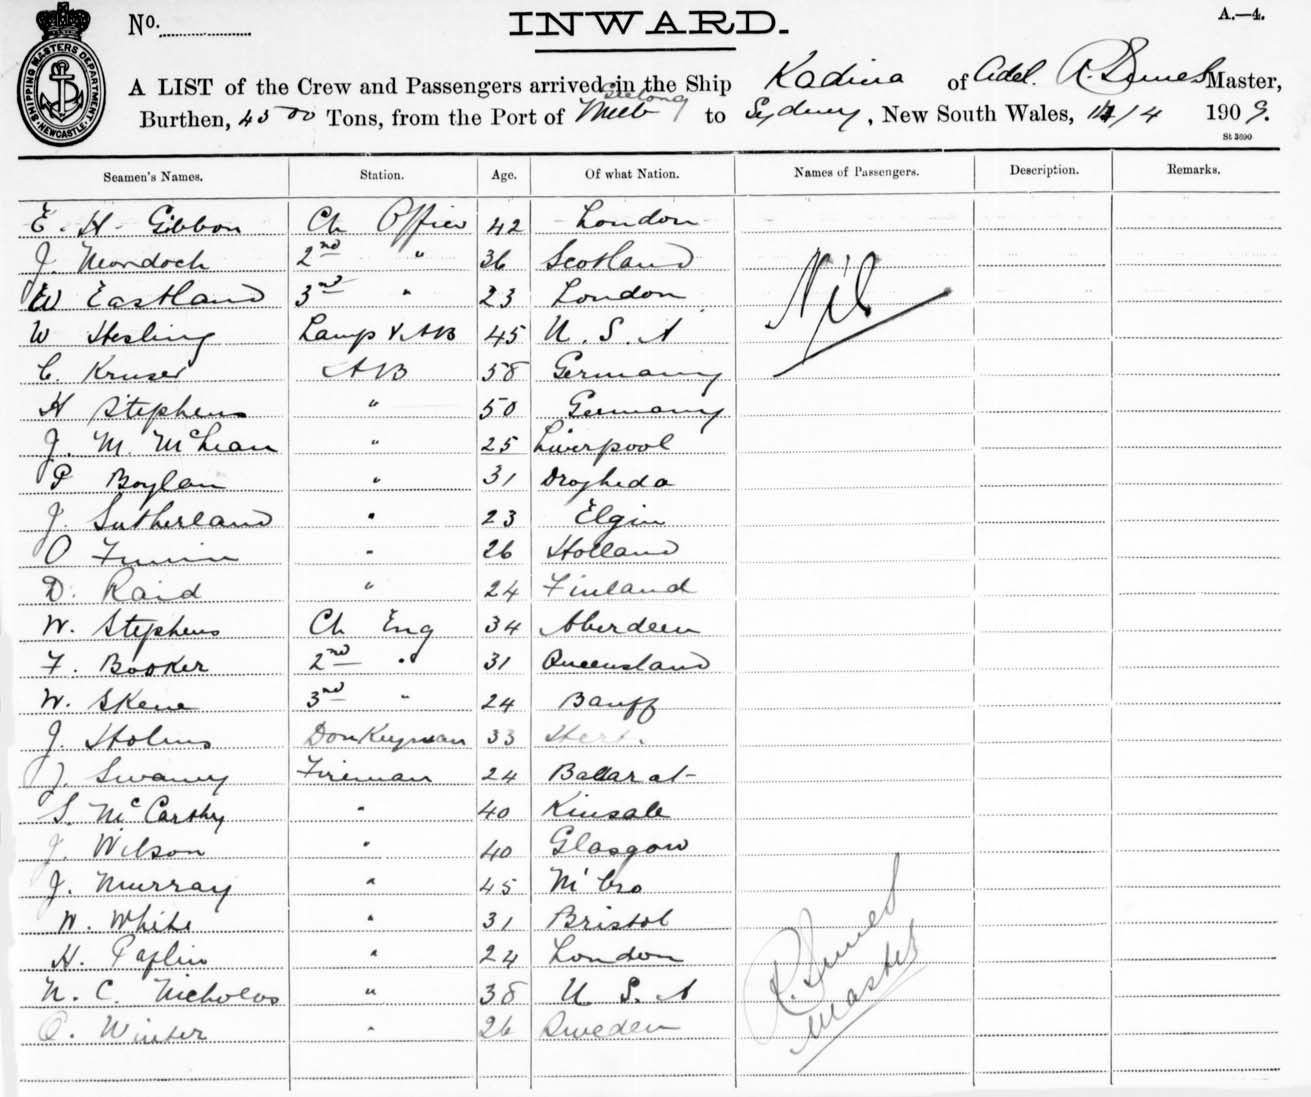 No. INWARD. A.—4.
SHIPPING MASTERS DEPARTMENT. NEWCASTLE.
A LIST of the Crew and Passengers arrived in the Ship Kadina of Adel. R. Master,
Geelong
Burthen, 4500 Tons, from the Port of Melb to Sydney, New South Wales, /4 1909.
St 3690
Seamen's Names. Station. Age. Of what Nation. Names of Passengers. Description. Remarks.
E. H. Gibbon Ch Officer 42 London
J. Murdoch 2nd " 36 Scotland
W Eastland 3rd " 23 London Nil
W Hesling Lamp & AB 45 U.S.A
C. Kruser AB 58 Germany
H Stephens " 50 Germany
J. M. McLean " 25 Liverpool
P Boylan " 31 Drogheda
J. Sutherland " 23 Elgin
O " 26 Holland
D. Raid " 24 Finland
W. Stephens Ch Eng 34 Aberdeen
F. Booker 2nd " 31 Queensland
W. Skene 3rd " 24 Banff
J. Holms Donkeyman 33
J. Swaney Fireman 24 Ballarat
S. McCarthy " 40 Kinsale
J. Wilson " 40 Glasgow
J. Murray " 45 M'bro
W. White " 31 Bristol
H. Paflin " 24 London
N. C. Nicholas " 38 U S. A
O. Winter " 26 Sweden
R.
Master